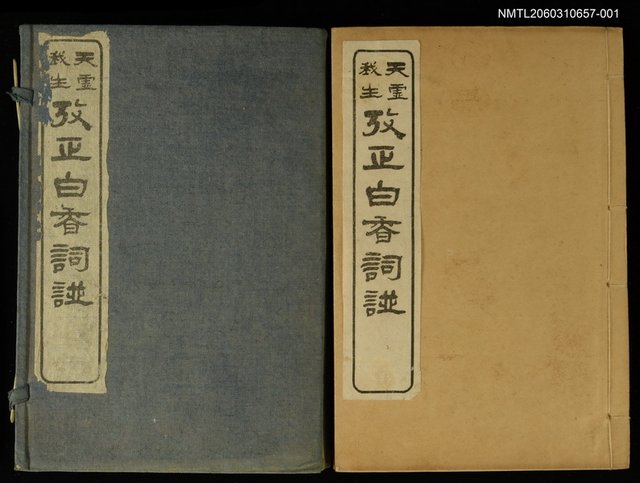 NMTL2060310657-001
天虛
我生
攷正白香詞譜
天虛
我生
攷正白香詞譜